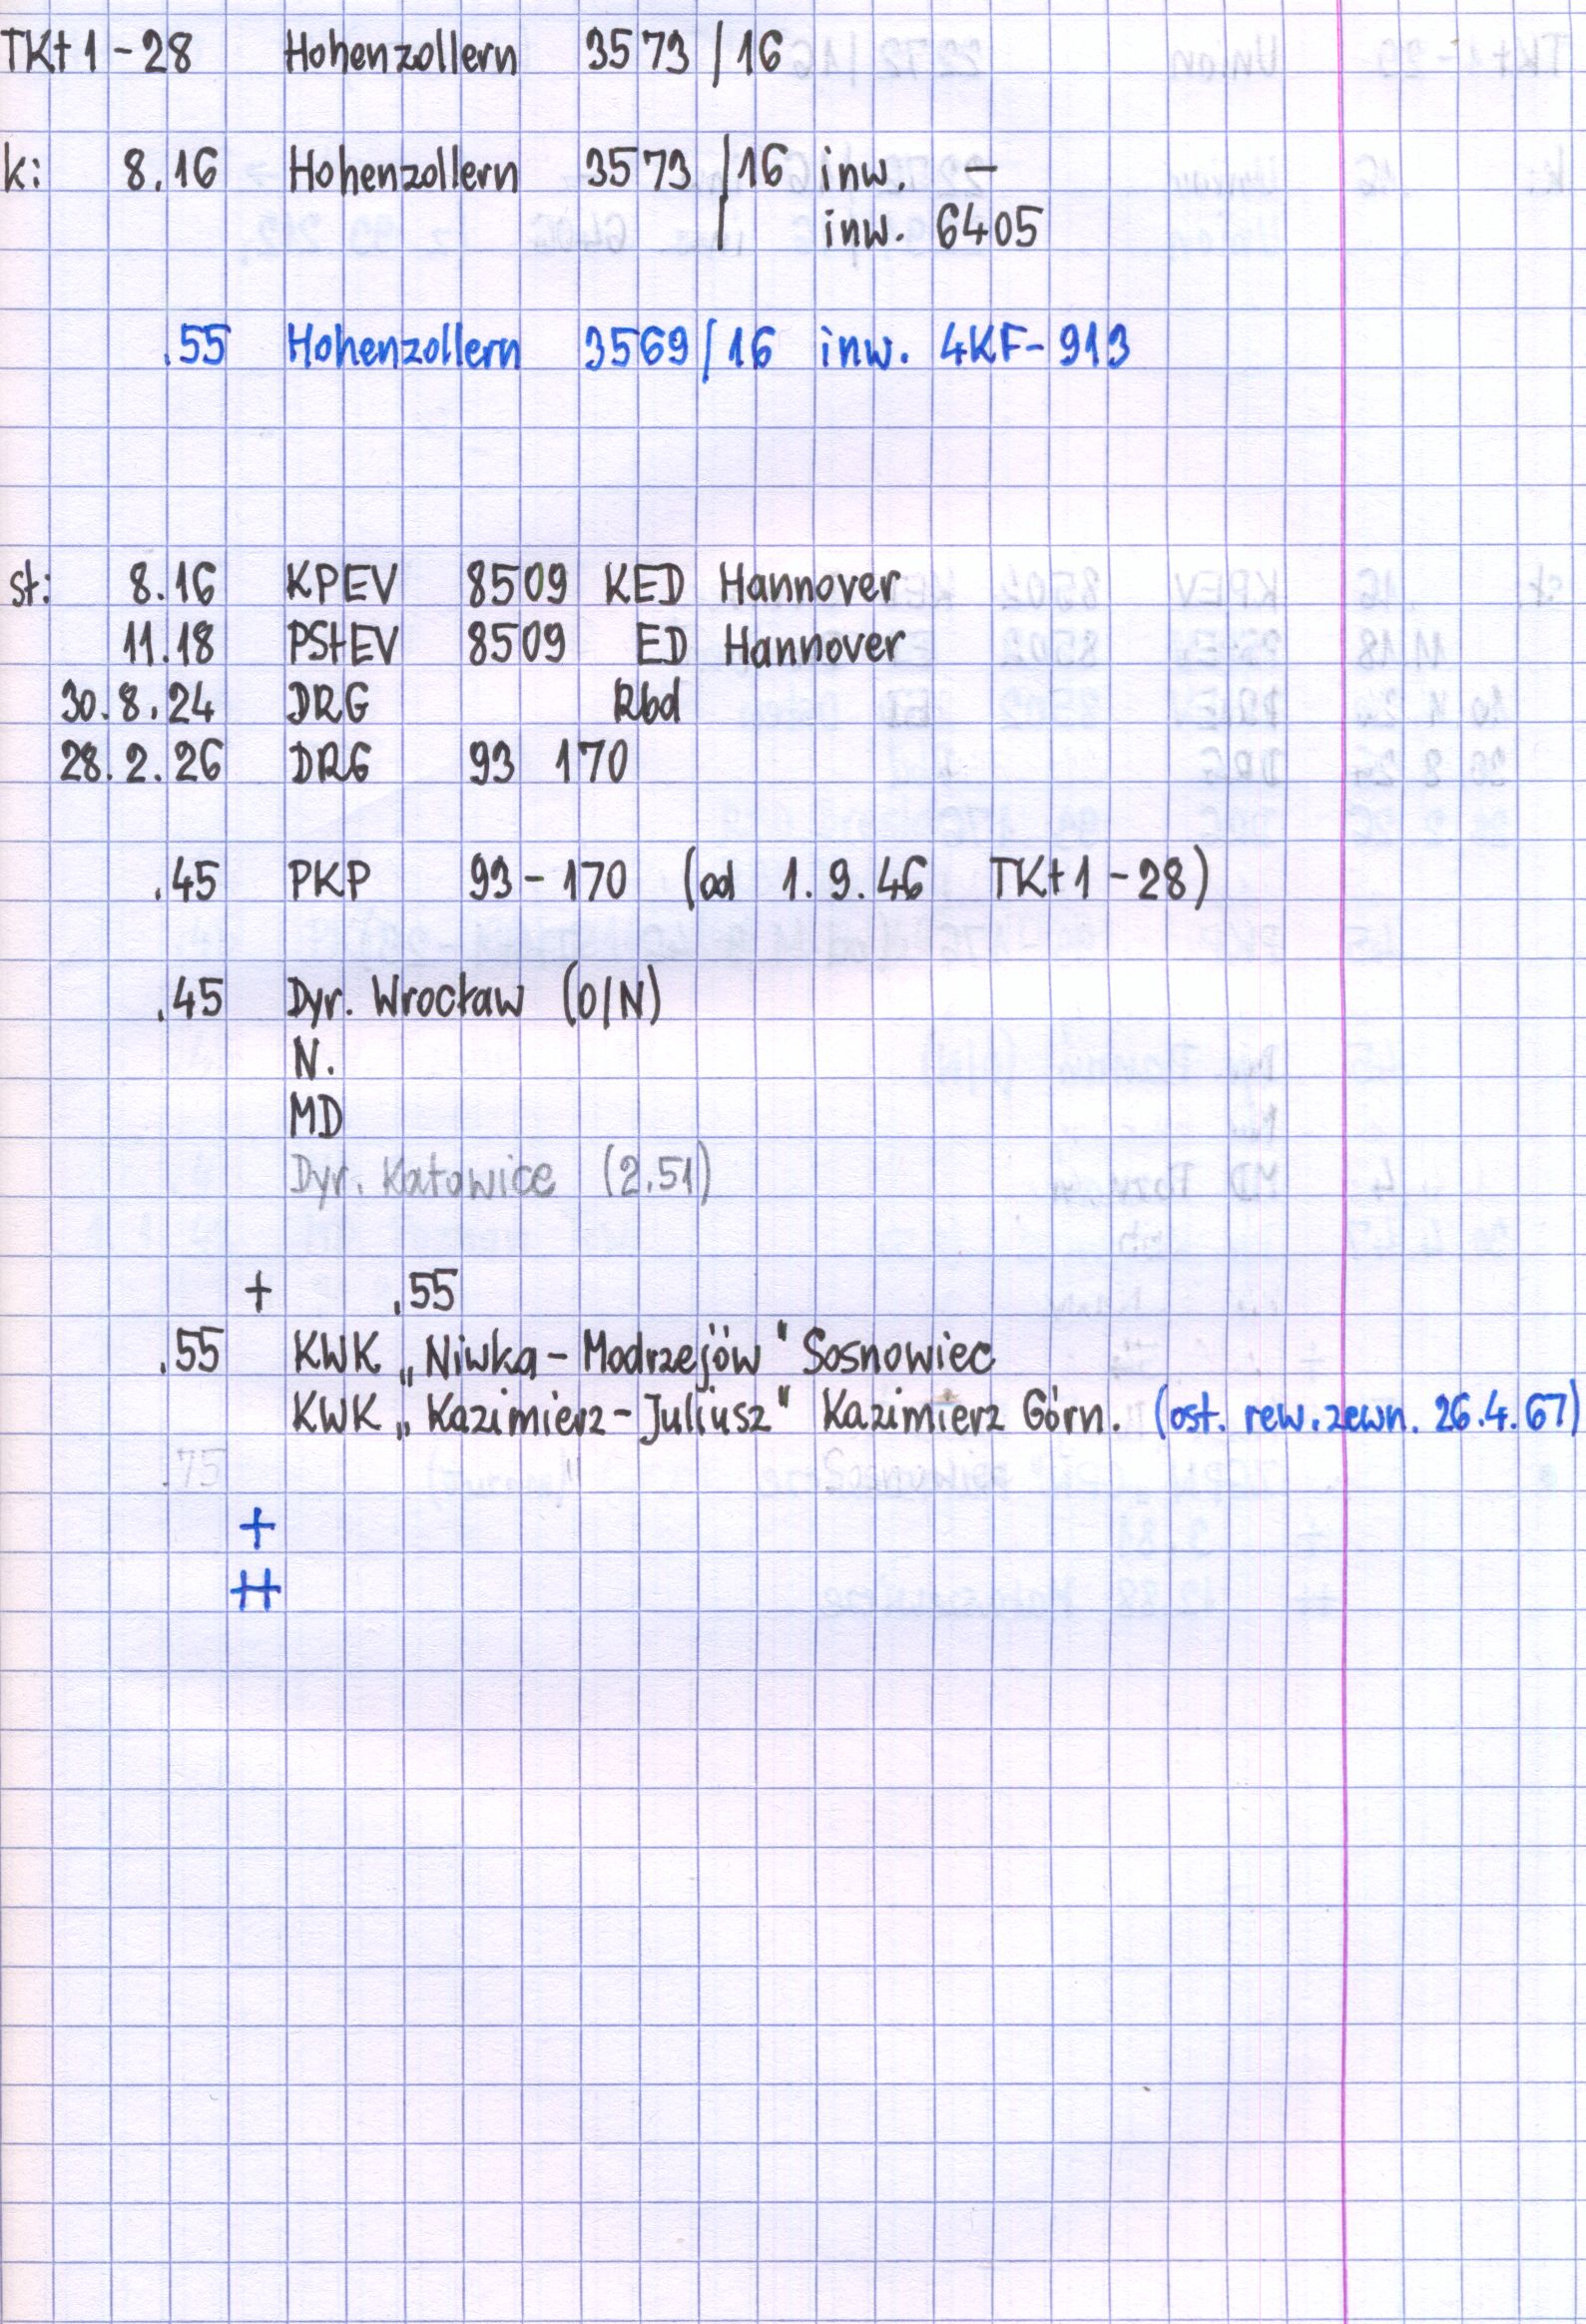 TKt1-28 Hohenzollern 3573/16
k: 8.16 Hohenzollern 3573/16 inw. –
/ inw. 6405
.55 Hohenzollern 3569/16 inw. 4KF-913
st: 8.16 KPEV 8509 KED Hannover
11.18 PStEV 8509 ED Hannover
30.8.24 DRG Rbd
28.2.26 DRG 93 170
.45 PKP 93-170 (od 1.9.46 TKt1-28)
.45 Dyr. Wrocław (O/N)
N.
MD
Dyr. Katowice (2.51)
+ .55
.55 KWK „Niwka-Modrzejów" Sosnowiec
KWK „Kazimierz-Juliusz" Kazimierz Górn. (ost. rew. zewn. 26.4.67)
.75
+
++